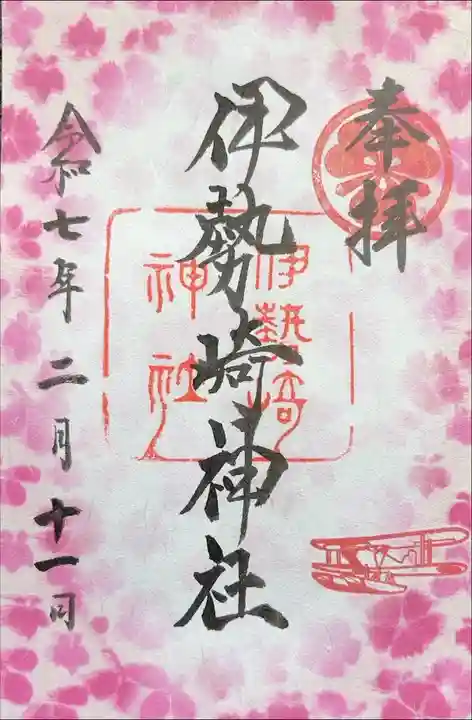 奉拝
伊勢崎神社
伊勢崎
神社
令和七年二月十一日